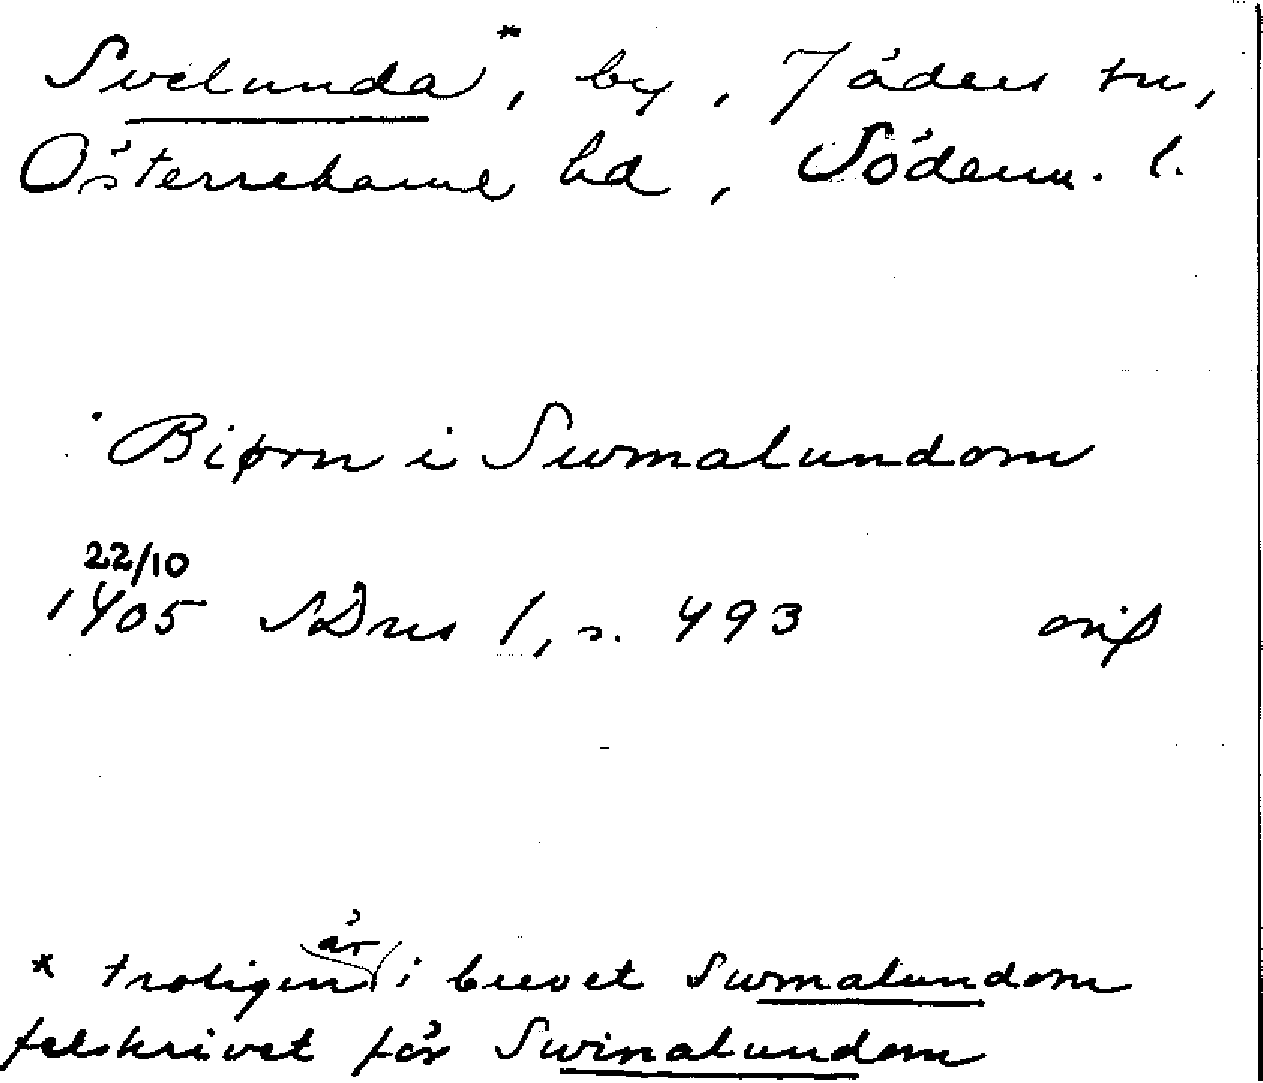 Svelunda*, by, Jäders sn,
Österrekarne hd, Söderm. l.
Biørn i Swmalundom
22/10
1405 SDns 1, s. 493 orig
* troligen är i brevet Swmalundom
felskrivet för Swinalundom